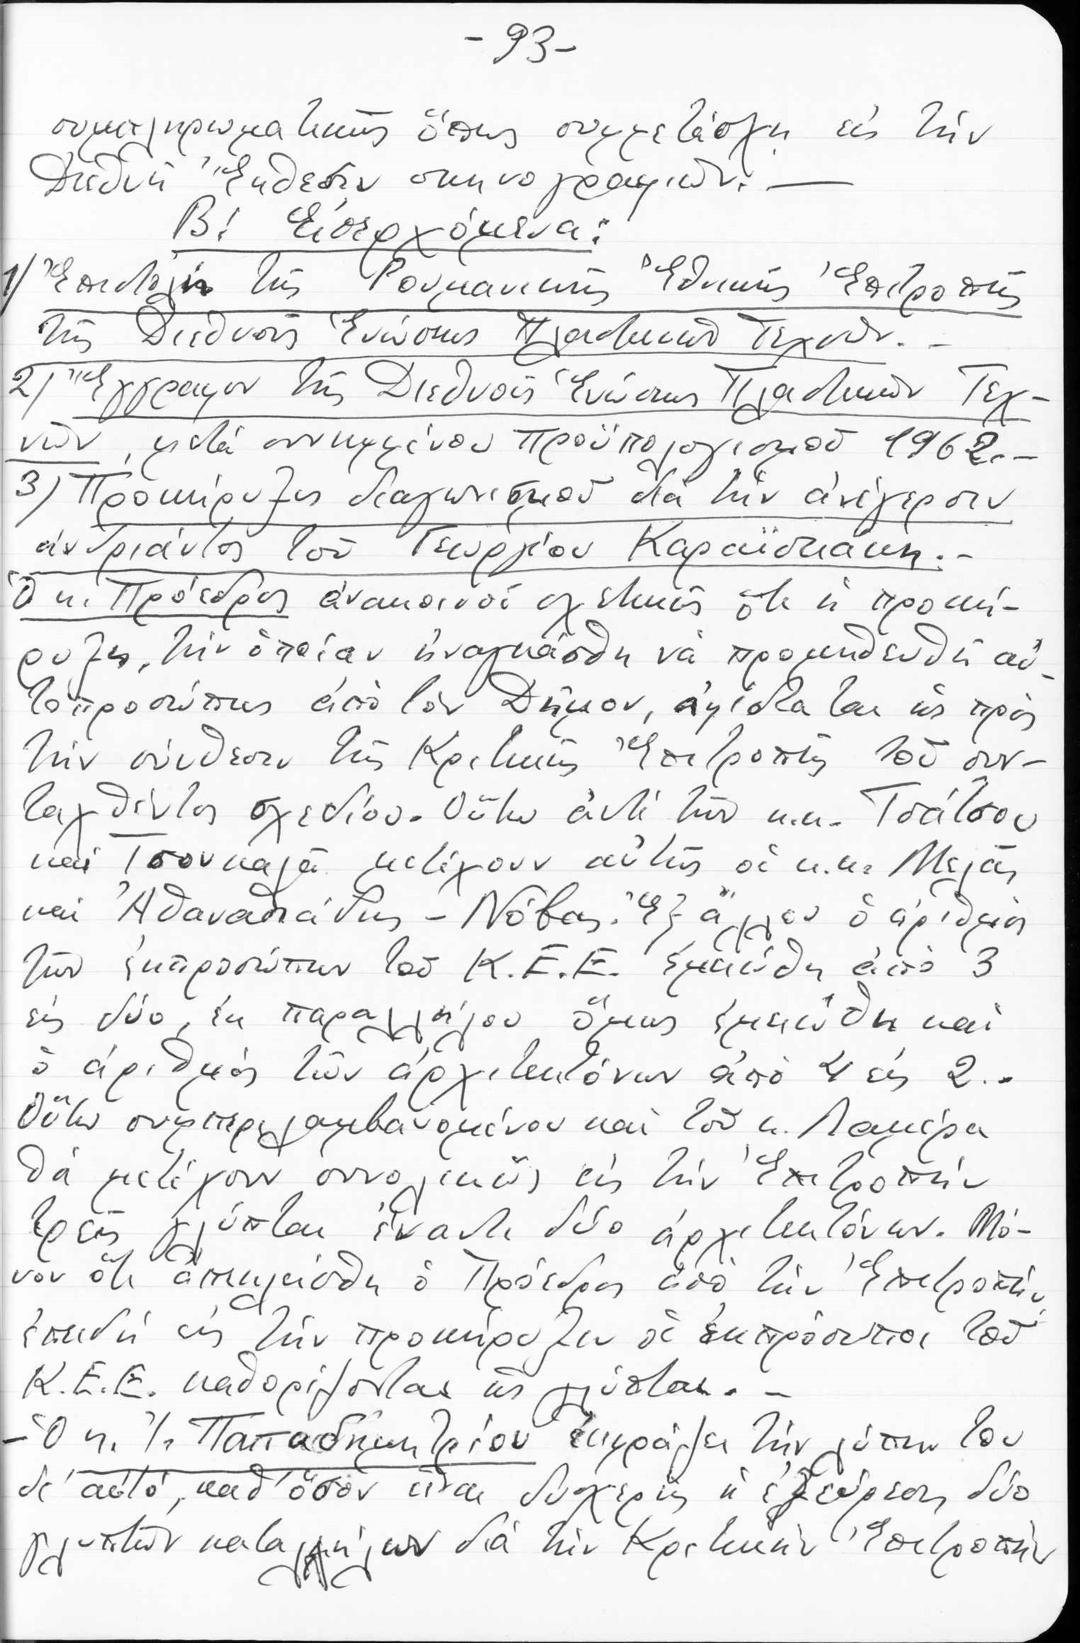 -93-
συμπληρωματικῶς ὅπως συμμετάσχῃ εἰς τὴν
Διεθνῆ Ἔκθεσιν σκηνογραφιῶν. —
Β! Εἰσερχόμενα:
1/ Ἐπιστολὴ τῆς Ρουμανικῆς Ἐθνικῆς Ἐπιτροπῆς
τῆς Διεθνοῦς Ἑνώσεως Πλαστικῶν Τεχνῶν. -
2) Ἔγγραφον τῆς Διεθνοῦς Ἑνώσεως Πλαστικῶν Τεχ-
νῶν, μετὰ συνημμένου προϋπολογισμοῦ 1962.-
3) Προκήρυξις διαγωνισμοῦ διὰ τὴν ἀνέγερσιν
ἀνδριάντος τοῦ Γεωργίου Καραϊσκάκη. -
Ὁ κ. Πρόεδρος ἀνακοινοῖ σχετικῶς ὅτι ἡ προκή-
ρυξις, τὴν ὁποίαν ἠναγκάσθη νὰ προμηθευθῇ αὐ-
τοπροσώπως ἀπὸ τὸν Δῆμον, ἀφίσταται ὡς πρὸς
τὴν σύνθεσιν τῆς Κριτικῆς Ἐπιτροπῆς τοῦ συν-
ταχθέντος σχεδίου. Οὕτω ἀντὶ τῶν κ.κ. Τσάτσου
καὶ Τσουκαλᾶ μετέχουν αὐτῆς οἱ κ.κ. Μελᾶς
καὶ Ἀθανασιάδης - Νόβας. Ἐξ ἄλλου ὁ ἀριθμὸς
τῶν ἐκπροσώπων τοῦ Κ.Ε.Ε. ἐμειώθη ἀπὸ 3
εἰς δύο, ἐκ παραλλήλου ὅμως ἐμειώθη καὶ
ὁ ἀριθμὸς τῶν ἀρχιτεκτόνων ἀπὸ 4 εἰς 2.-
Οὕτω συμπεριλαμβανομένου καὶ τοῦ κ. Λαμέρα
θὰ μετέχουν συνολικῶς εἰς τὴν Ἐπιτροπὴν
τρεῖς γλύπται ἔναντι δύο ἀρχιτεκτόνων. Μό-
νον ὅτι ἀπεκλείσθη ὁ Πρόεδρος ἀπὸ τὴν Ἐπιτροπήν,
ἐπειδὴ εἰς τὴν προκήρυξιν οἱ ἐκπρόσωποι τοῦ
Κ.Ε.Ε. καθορίζονται ὡς γλύπται. -
- Ὁ κ. Ἰ. Παπαδημητρίου ἐκφράζει τὴν λύπην του
δι' αὐτό, καθ' ὅσον εἶναι δυσχερὴς ἡ ἐξεύρεσις δύο
γλυπτῶν καταλλήλων διὰ τὴν Κριτικὴν Ἐπιτροπὴν